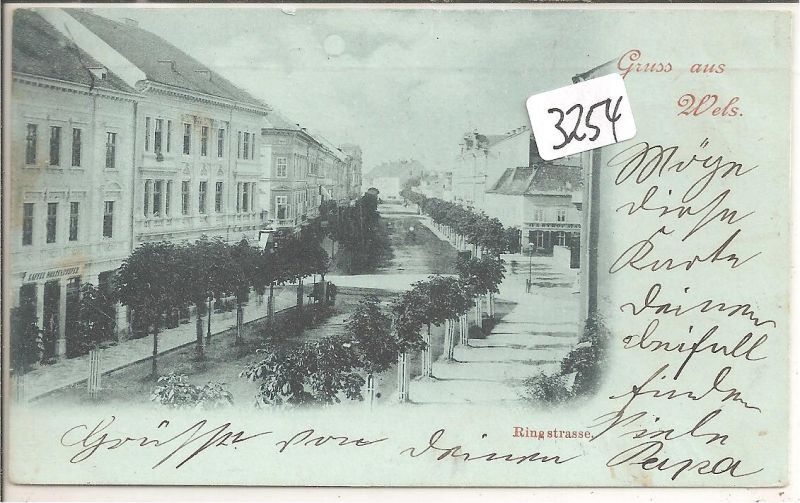 Gruss aus
Wels.
3254
Möge
diese
Karte
Deinen
Beifall
finden
Viele
Grüsse von Deinen
Papa
Ringstrasse.